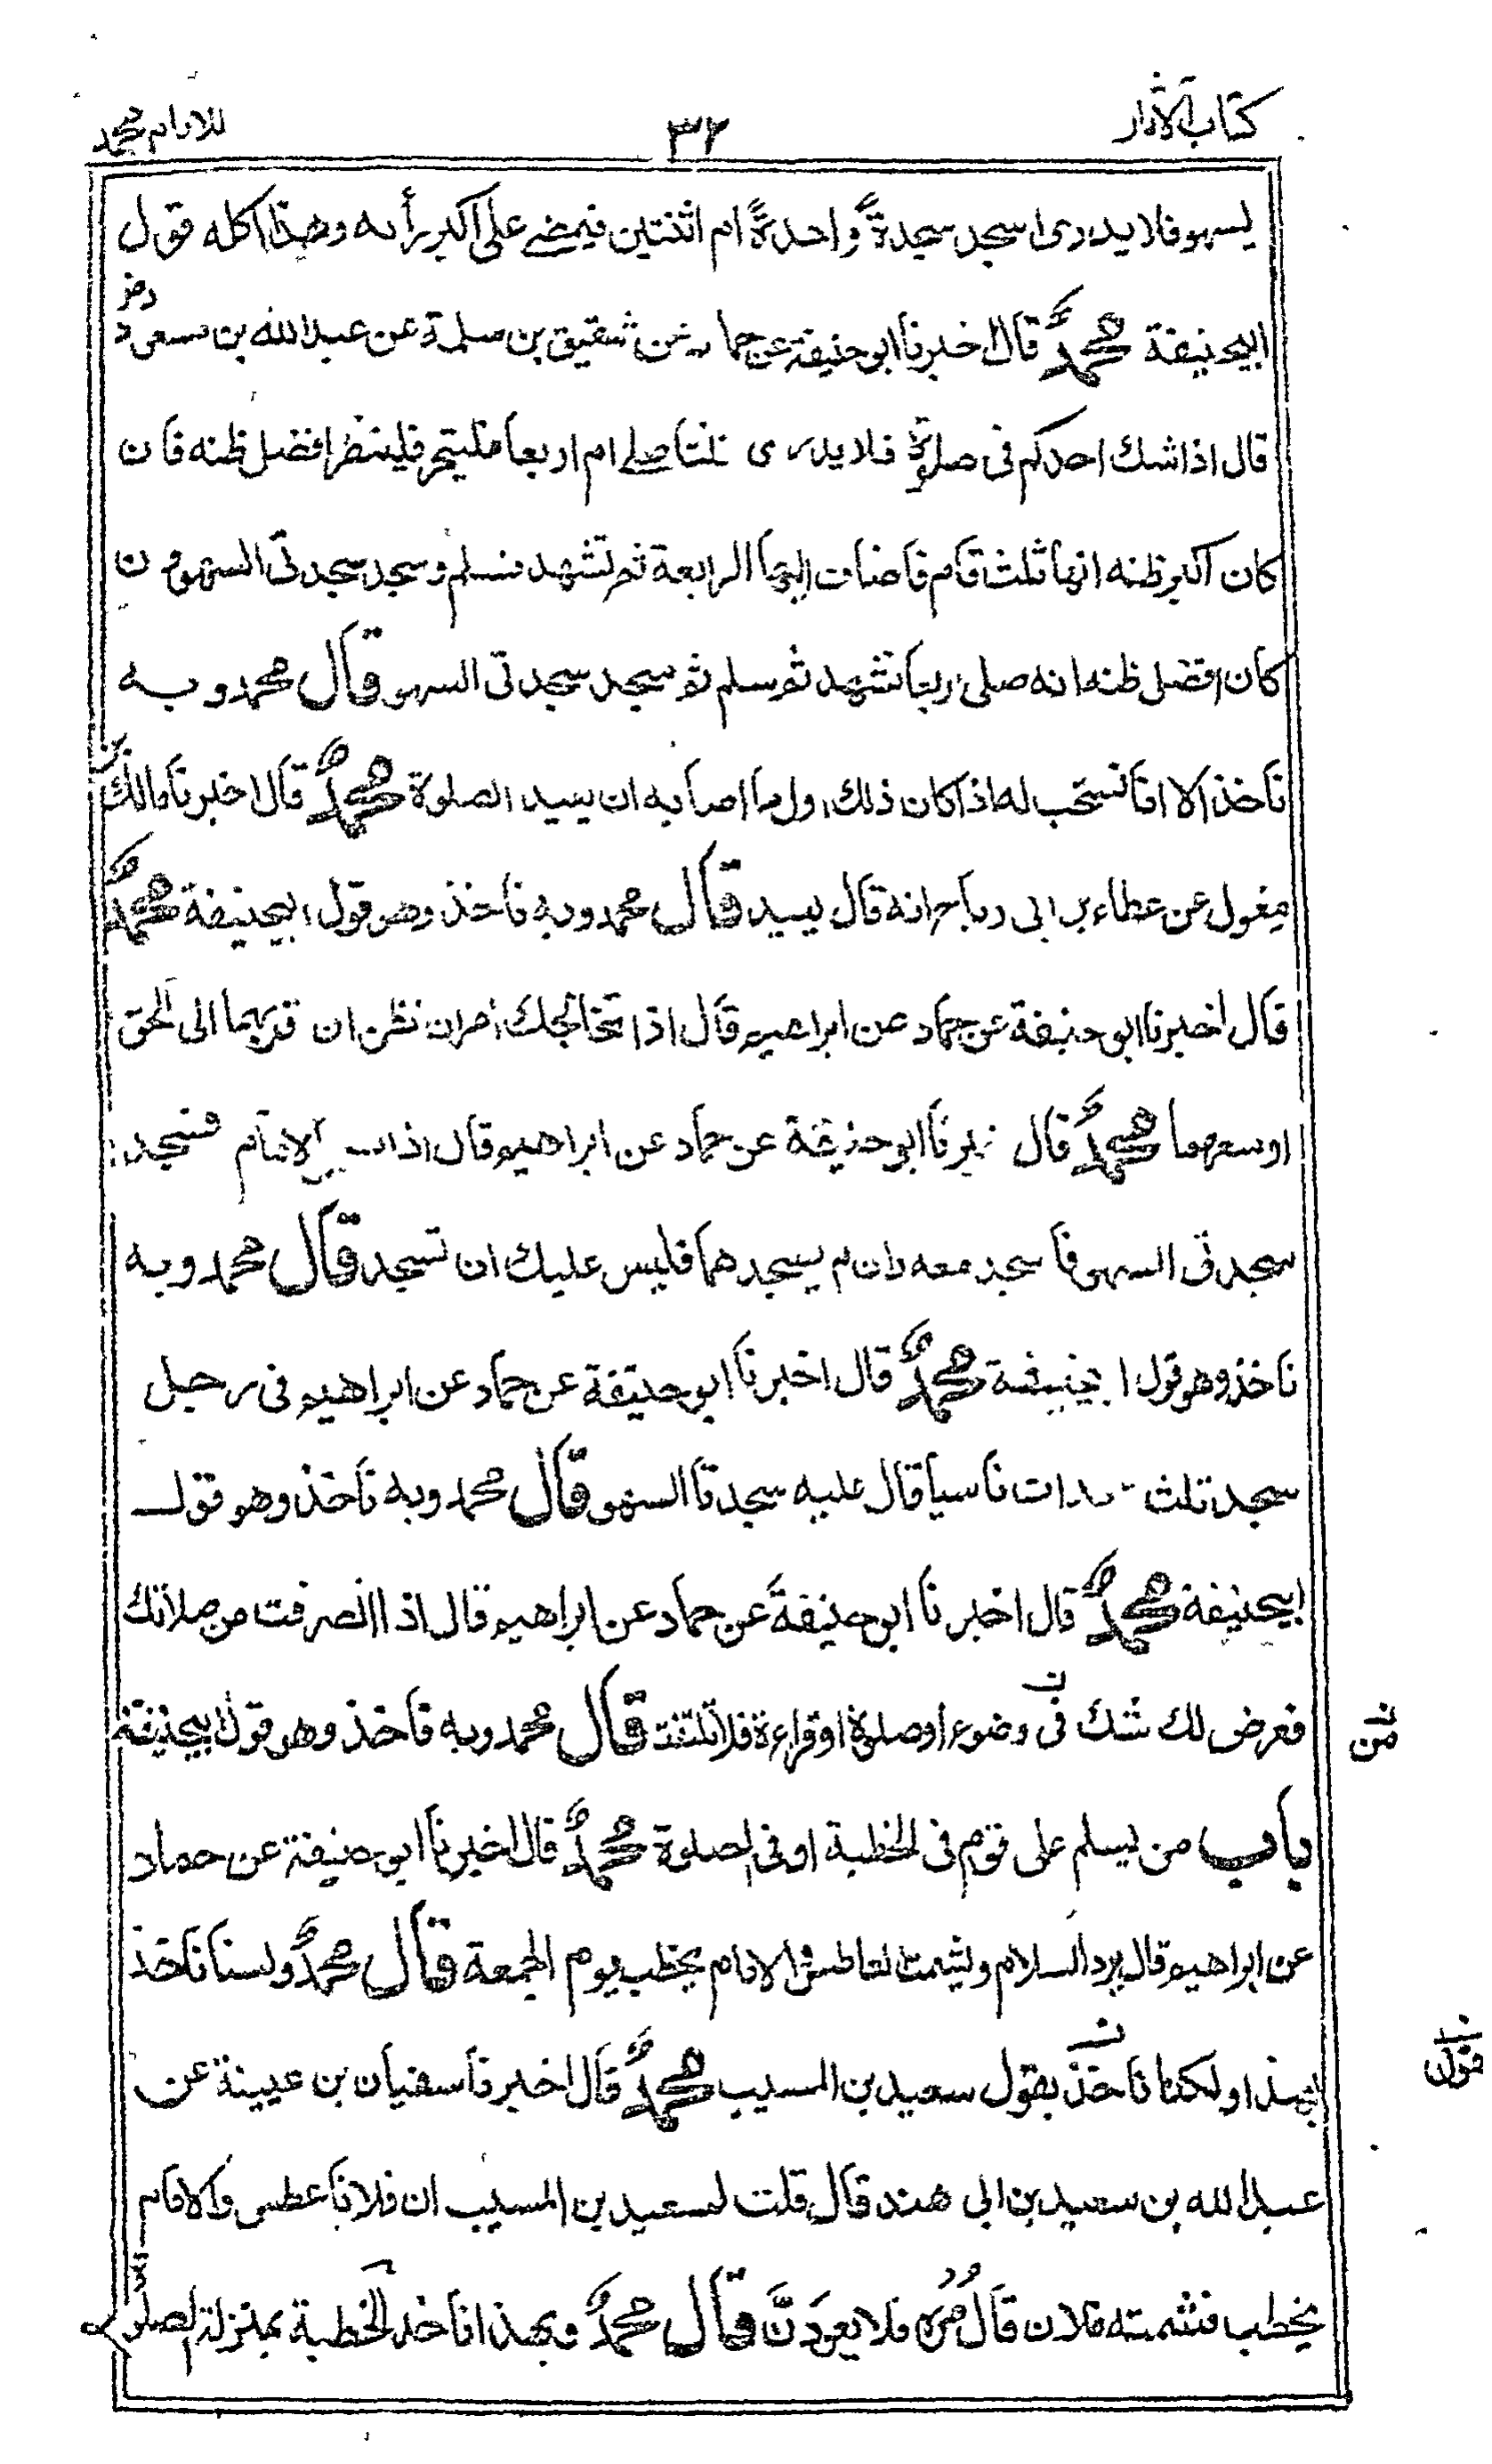 كتاب الآثار
٣٢
للامام محمد
يسهو فلا يدرى اسجد سجدةً واحدةً ام اثنتين فيمضے على اكبر رأيه وهذا كله قول
ابيحنيفة محمد قال اخبرنا ابو حنيفة عن حماد عن شقيق بن سلمة عن عبد الله بن مسعود رض
قال اذا شك احدكم فى صلوة فلا يدرى ثلثا صلے ام اربعا فليتحر فلينظر افضل ظنه فان
كان اكبر ظنه انها ثلث قام فاضاف اليها الرابعة ثم تشهد فسلم وسجد سجدتى السهو و ن
كان افضل ظنه انه صلى اربعا تشهد ثم سلم ثم سجد سجدتى السهو قال محمد وبه
ناخذ الا انا نستحب له اذا كان ذلك اول ما اصابه ان يعيد الصلوة محمد قال اخبرنا مالك بن
مغول عن عطاء بن ابى رباح انه قال يعيد قال محمد وبه ناخذ وهو قول ابيحنيفة محمد
قال اخبرنا ابو حنيفة عن حماد عن ابراهيم قال اذا تخالجك امران نظن ان قربهما الى الحق
اوسعهما محمد قال خبرنا ابو حنيفة عن حماد عن ابراهيم قال اذا الامام فسجد
سجدتى السهو فاسجد معه وان لم يسجدهما فليس عليك ان تسجد قال محمد وبه
ناخذ وهو قول ابيحنيفة محمد قال اخبرنا ابو حنيفة عن حماد عن ابراهيم فى رجل
سجد ثلث سجدات ناسيا قال عليه سجدتا السهو قال محمد وبه ناخذ وهو قول
ابيحنيفة محمد قال اخبرنا ابو حنيفة عن حماد عن ابراهيم قال اذا انصرفت من صلاتك
فعرض لك شك فى وضوء او صلوة او قراءة فلا تلتفت قال محمد وبه ناخذ وهو قول ابيحنيفة
من
باب من يسلم على قوم فى الخطبة او فى الصلوة محمد قال اخبرنا ابو حنيفة عن حماد
عن ابراهيم قال يرد السلام ويشمت العاطس والامام يخطب يوم الجمعة قال محمد ولسنا ناخذ
بهذا ولكنا ناخذ بقول سعيد بن المسيب محمد قال اخبرنا سفيان بن عيينة عن
قول
عبد الله بن سعيد بن ابى هند قال قلت لسعيد بن المسيب ان فلانا عطس والامام
يخطب فشمته فلان قال مره فلا يعودَنَّ قال محمد وبهذا ناخذ الخطبة بمنزلة الصلوة